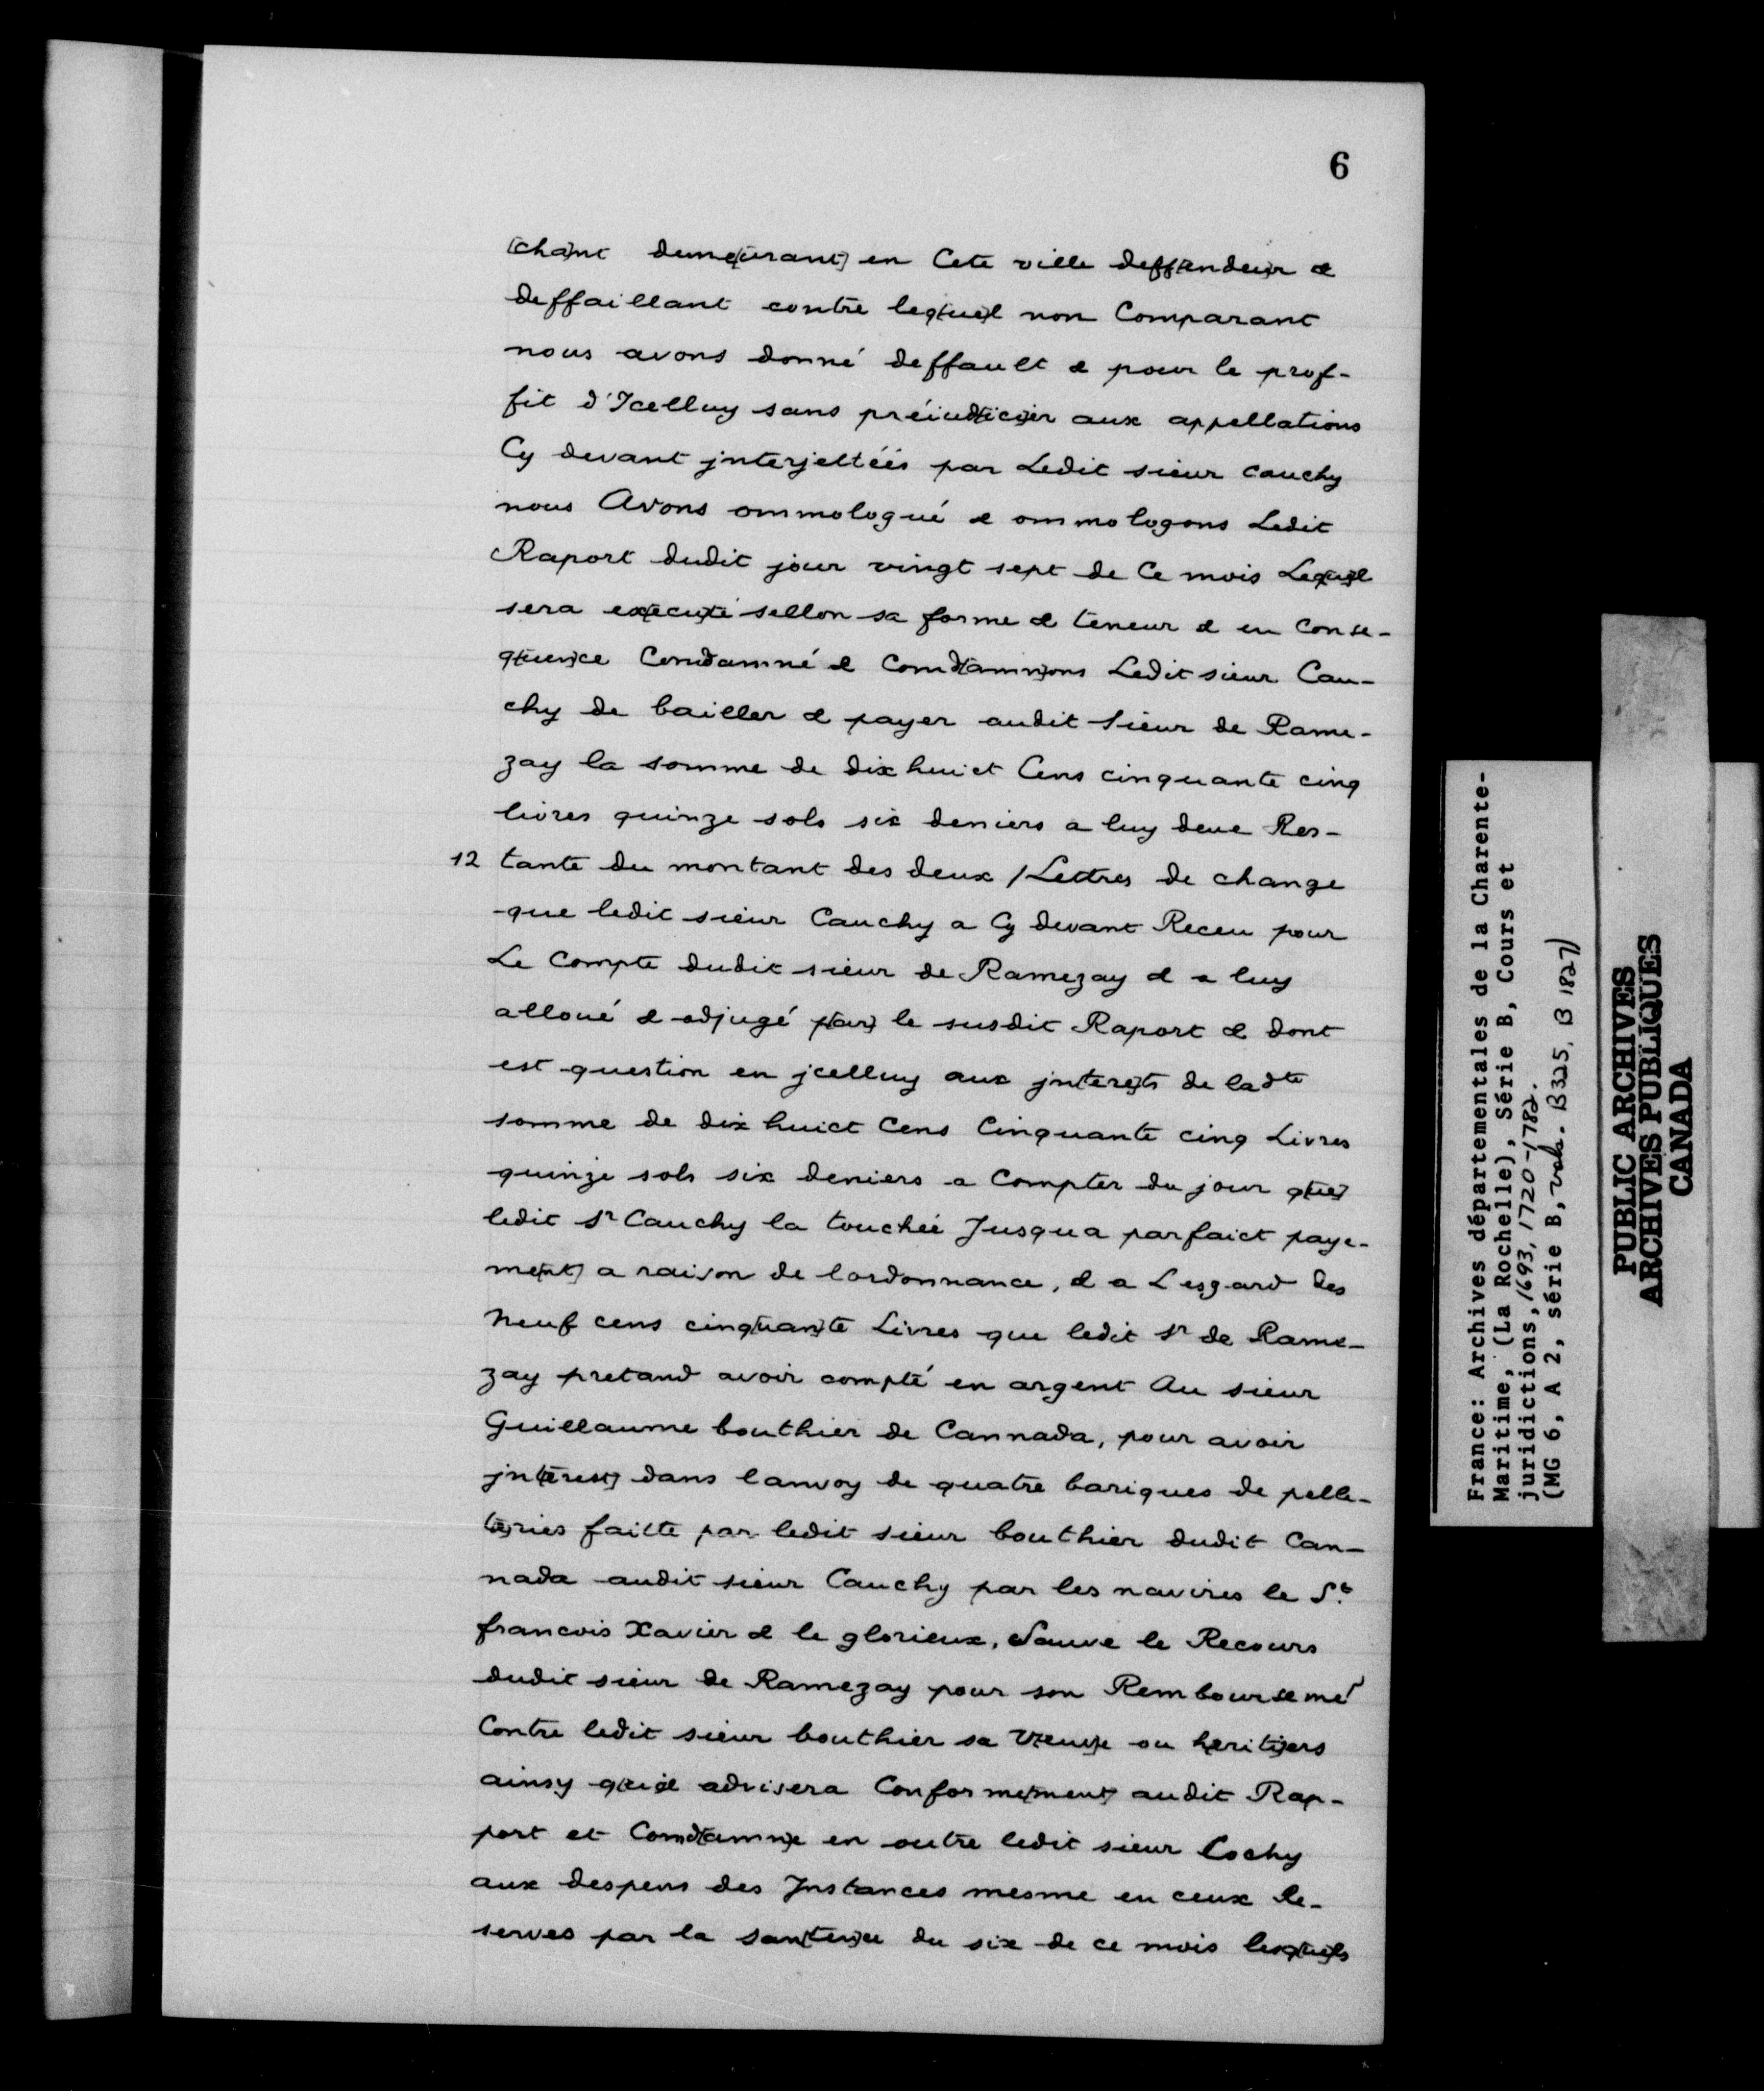 6
[cha]nt deme[urant] en Cete ville deff[endeu]r &
deffaillant contre leq[ue]l non Comparant
nous avons donné deffault & pour le prof-
fit d'Icelluy sans préiud[ici]er aux appellations
Cy devant jnterjettéés par Ledit sieur Cauchy
nous Avons ommologué & ommologons Ledit
Raport dudit jour vingt sept de Ce mois Leq[ue]l
sera ex[ecu]té sellon sa forme & teneur & en Conse-
q[uen]ce Condamné & Cond[amn]ons Ledit sieur Cau-
chy de bailler & payer audit Sieur de Rame-
zay la somme de dix huict Cens cinquante cinq
livres quinze sols six deniers a luy deue Res-
12 tante du montant des deux /Lettres de change
que ledit sieur Cauchy a Cy devant Receu pour
Le Compte dudit sieur de Ramezay & a luy
alloué & adjugé p[ar] le susdit Raport & dont
est question en jcelluy aux jnt[ere]ts de ladte
somme de dix huict Cens Cinquante cinq Livres
quinze sols six deniers a Compter du jour q[ue]
ledit Sr Cauchy la touchée Jusqua parfaict paye-
me[nt] a raison de lordonnance, & a Lesgard des
Neuf cens cinq[uan]te Livres que ledit Sr de Rame-
zay pretand avoir compté en argent Au sieur
Guillaume bouthier de Cannada, pour avoir
jnt[erest] dans lanvoy de quatre bariques de pelle-
[te]ries faitte par ledit sieur bouthier dudit Can-
nada audit sieur Cauchy par les navires le St
francois Xavier & le glorieux, Sauve le Recours
dudit sieur de Ramezay pour son Rembourseme
Contre ledit sieur bouthier sa V[euv]e ou h[eriti]ers
ainsy q[u']il advisera Conforme[ment] audit Rap-
port et Cond[amn]e en outre ledit sieur Cochy
aux despens des Instances mesme en ceux Re-
serves par la san[ten]ce du six de ce mois lesq[ue]ls
France: Archives départementales de la Charente-
Maritime, (La Rochelle), Série B, Cours et
juridictions, 1693, 1720-1782.
(MG 6, A 2, série B, vols. B325, B 1827)
PUBLIC ARCHIVES
ARCHIVES PUBLIQUES
CANADA